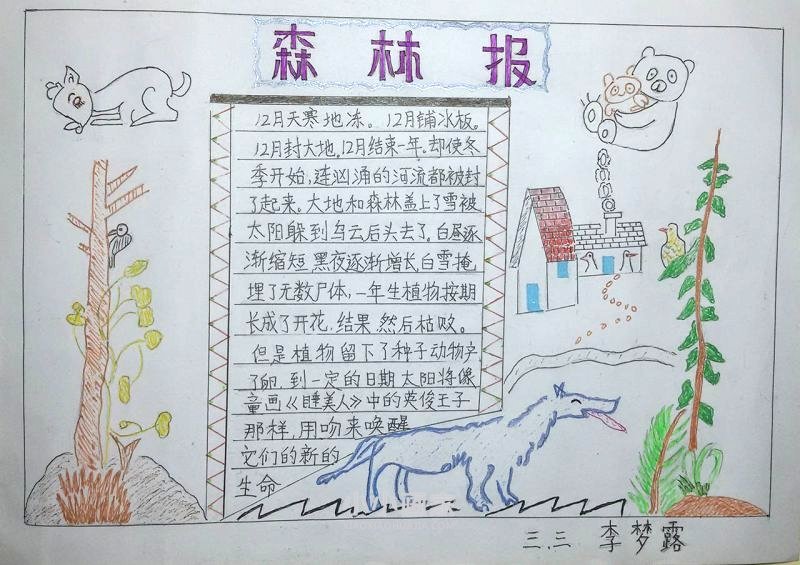 森林报
12月天寒地冻。12月铺冰板。
12月封大地,12月结束一年。却使冬
季开始,连汹涌的河流都被封
了起来。大地和森林盖上了雪被
太阳躲到乌云后头去了,白昼逐
渐缩短,黑夜逐渐增长,白雪掩
埋了无数尸体,一年生植物按期
长成了开花.结果,然后枯败。
但是植物留下了种子动物产
了卵,到一定的日期太阳将像
童画《睡美人》中的英俊王子
那样,用吻来唤醒
它们的新的
生命
三.三 李梦露